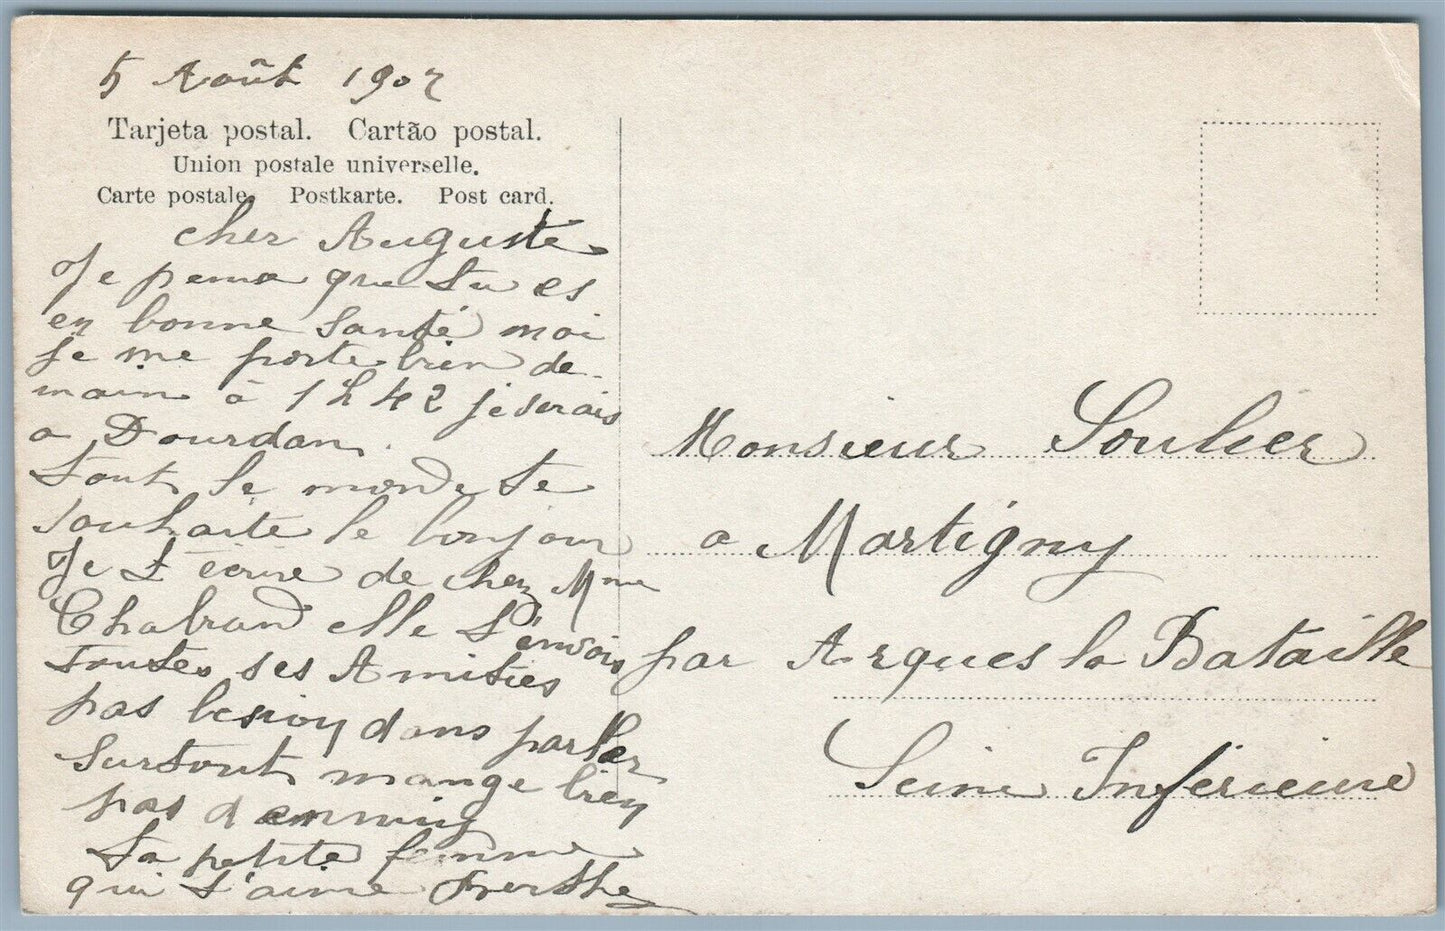 5 Août 1907
Tarjeta postal. Cartão postal.
Union postale universelle.
Carte postale. Postkarte. Post card.
cher Auguste
Je pense que tu es
en bonne santé moi
je me porte bien de-
main à 1 h 42 je serais
a Dourdan.
tout le monde te
souhaite le bonjour
Je t'écrire de chez Mme
Chatrand elle t'envois
toutes ses Amitiés
pas besoin dans parler
surtout mange bien
pas d'ennuis
ta petite femme
qui t'aime Berthe
Monsieur Soulier
a Martigny
par Arques la Bataille
Seine Inférieure